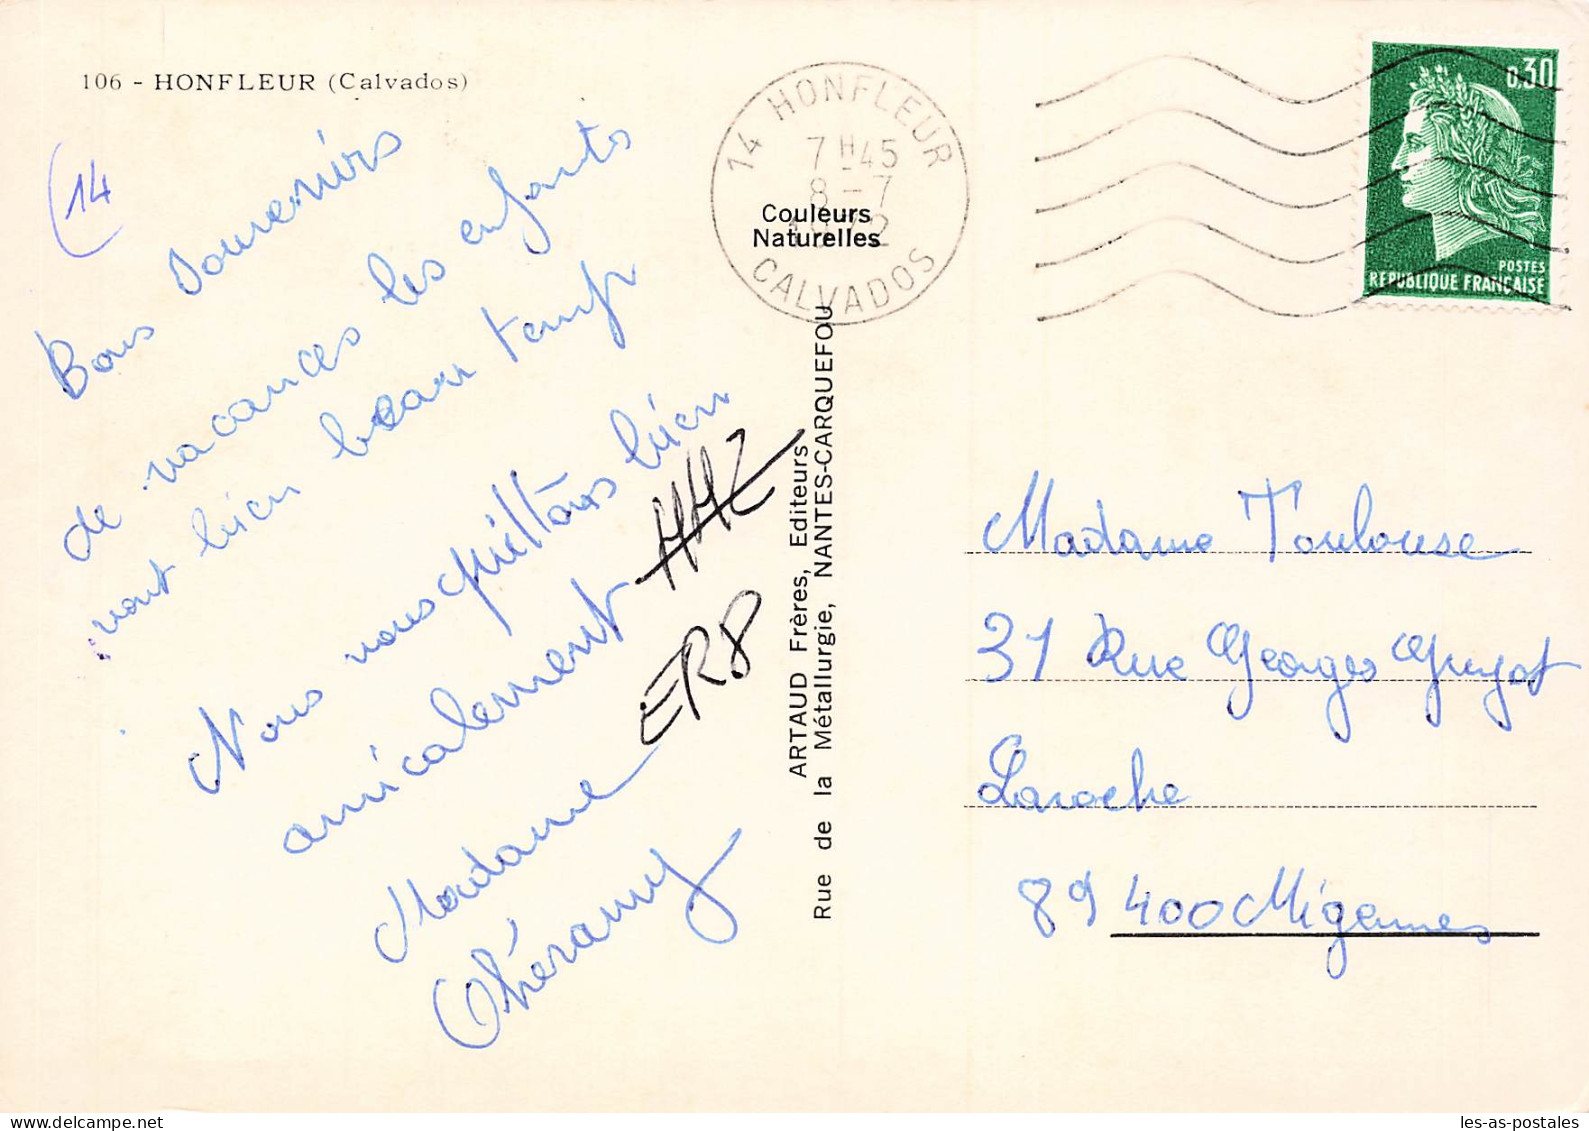 106 - HONFLEUR (Calvados)
(14
Bons souvenirs
de vacances les enfants
vont bien beau temps
Nous vous quittons bien
amicalement
Madame
Chéramy
ERP
14 HONFLEUR
7 H 45
8 - 7
CALVADOS
Couleurs
Naturelles
ARTAUD Frères, Editeurs
Rue de la Métallurgie, NANTES-CARQUEFOU
0,30
POSTES
REPUBLIQUE FRANÇAISE
Madame Toulouse
31 Rue Georges Guyot
Laroche
89 400 Migennes
les-as-postales